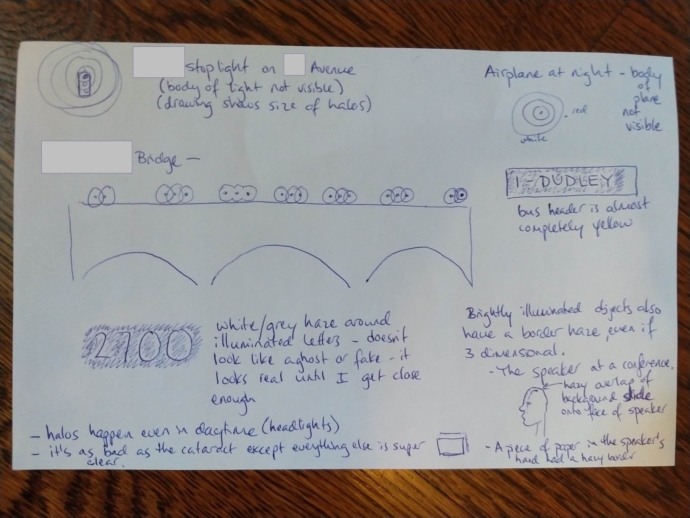 stoplight on Avenue
(body of light not visible)
(drawing shows size of halos)
Airplane at night - body
of
plane
not
visible
red
white
Bridge -
1 - DUDLEY
bus header is almost
completely yellow
2700
white/grey haze around
illuminated letters - doesn't
look like a ghost or fake - it
looks real until I get close
enough
Brightly illuminated objects also
have a border haze, even if
3 dimensional.
- The speaker at a conference,
hazy overlap of
background slide
onto face of speaker
- A piece of paper in the speaker's
hand had a hazy border
- halos happen even in daytime (headlights)
- it's as bad as the cataract except everything else is super
clear.